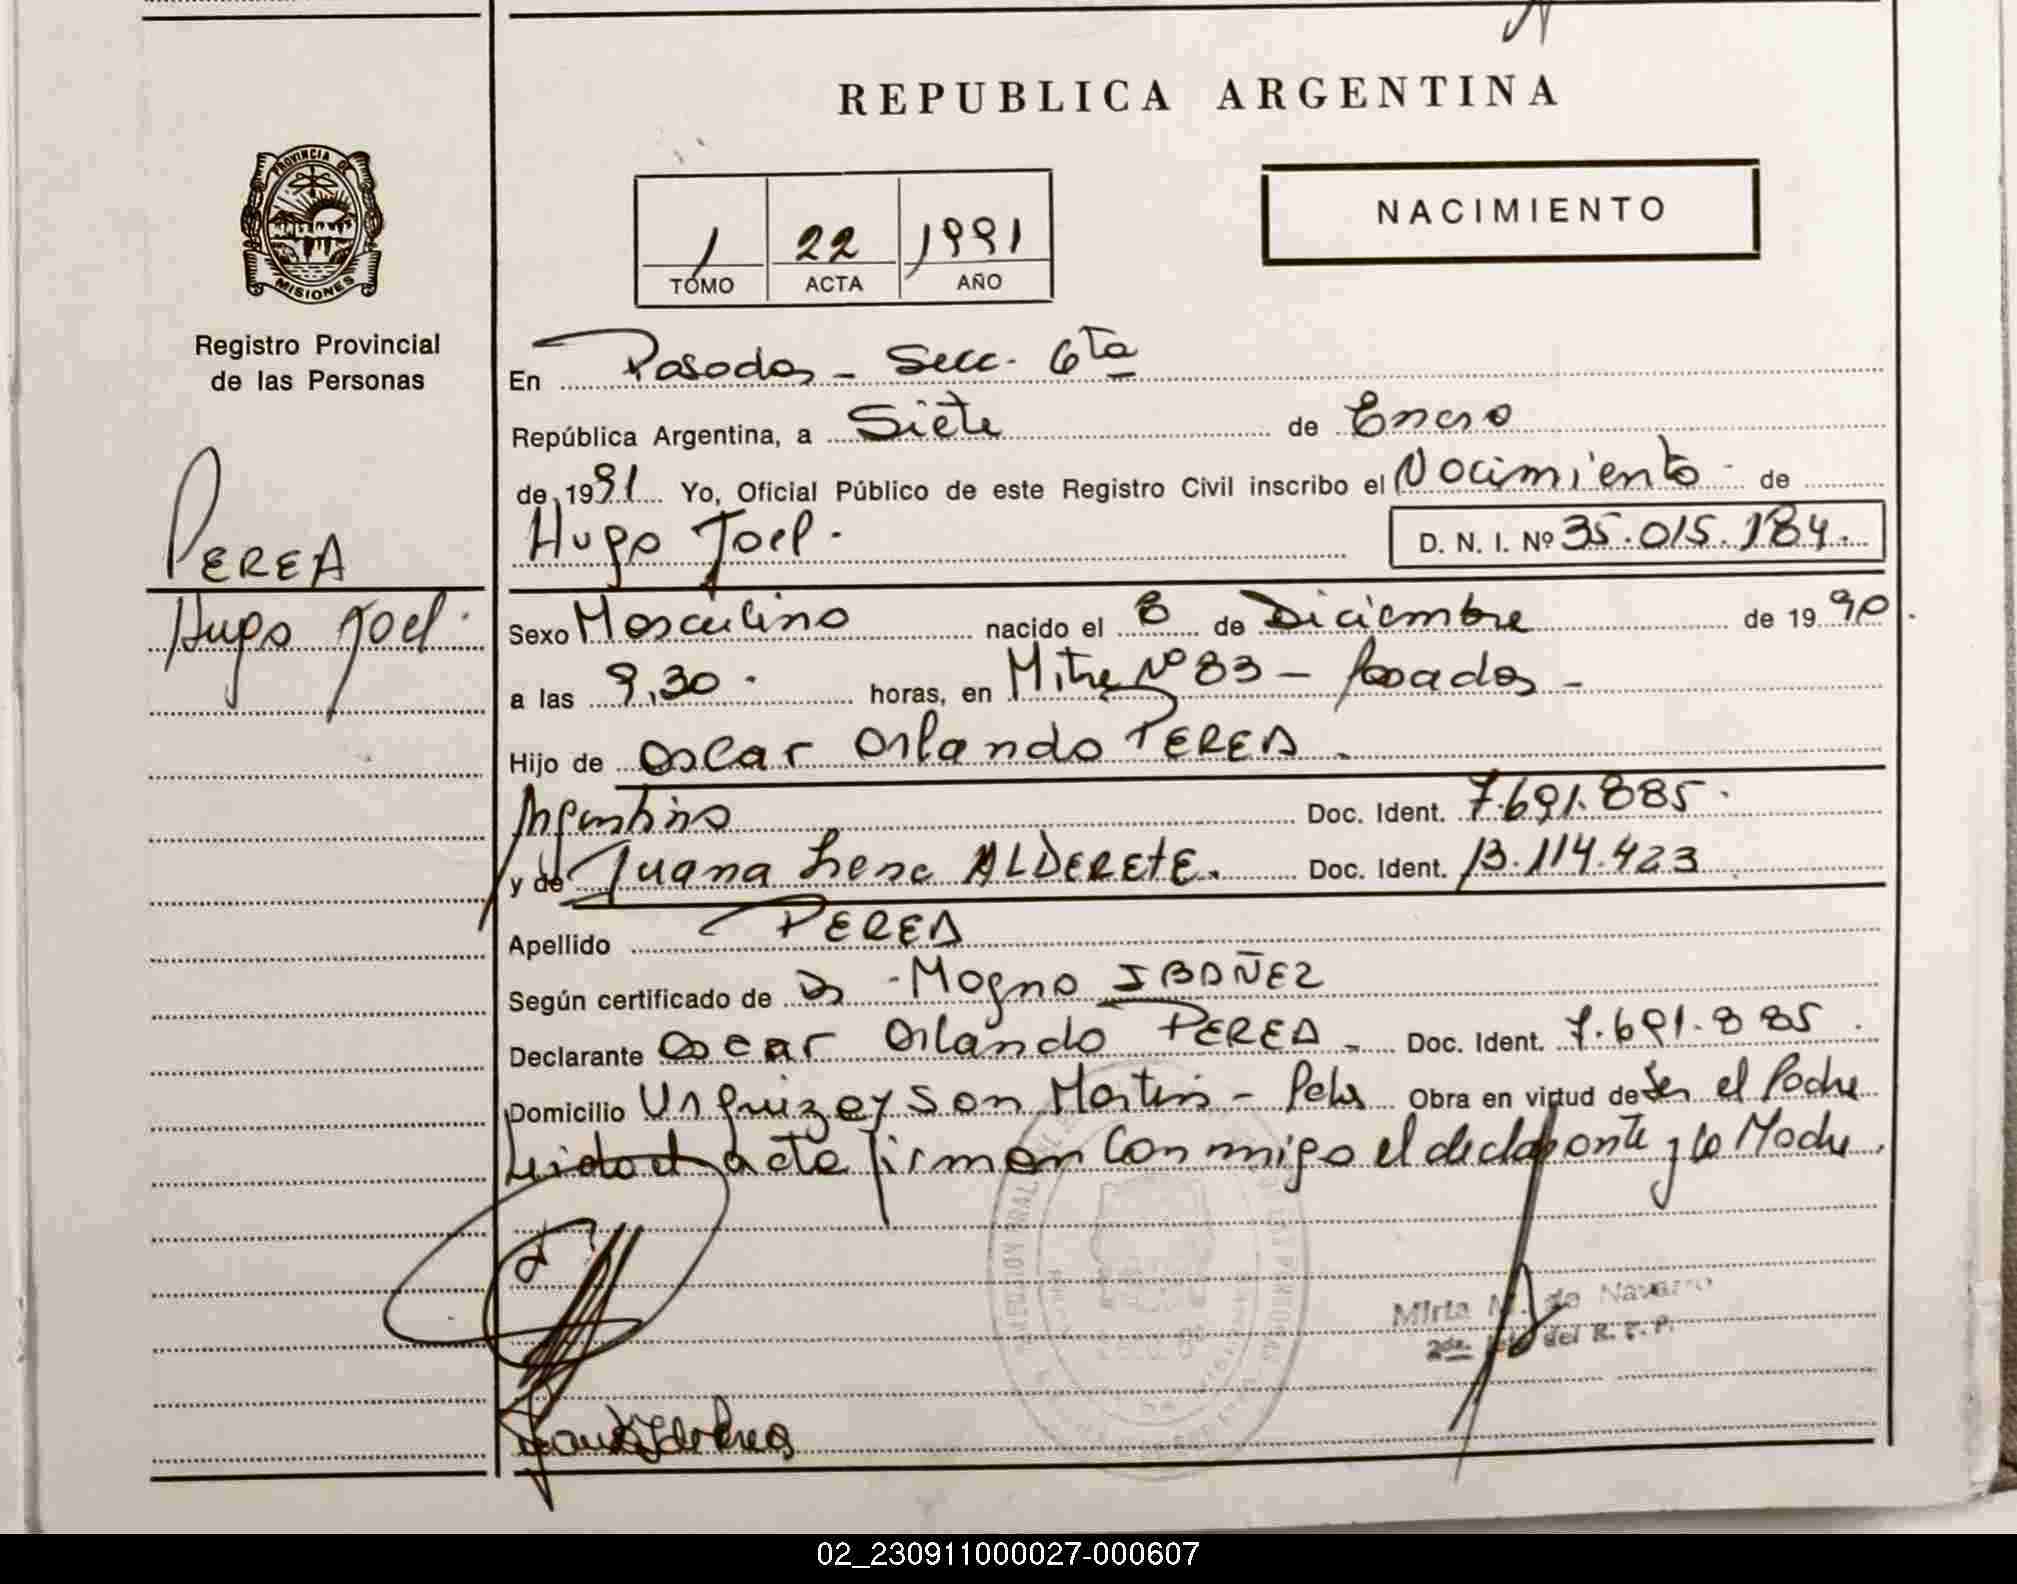 REPUBLICA ARGENTINA
PROVINCIA DE
MISIONES
Registro Provincial
de las Personas
PEREA
Hugo Joel.
1 22 1991
TOMO ACTA AÑO
NACIMIENTO
En Posadas - Secc. 6ta
República Argentina, a Siete de Enero
de 1991 Yo, Oficial Público de este Registro Civil inscribo el Nacimiento - de
Hugo Joel. D. N. I. Nº 35.015.184.
Sexo Masculino nacido el 8 de Diciembre de 1990.
a las 9,30. horas, en Mitre Nº 83 - Posadas -
Hijo de Oscar Orlando PEREA -
Argentino Doc. Ident. 7.691.885.
y de Juana Irene ALDERETE. Doc. Ident. 13.114.423
Apellido PEREA
Según certificado de Dr. Magno IBAÑEZ
Declarante Oscar Orlando PEREA - Doc. Ident. 7.691.885.
Domicilio Urquiza y San Martin - Obra en virtud de Ser el Padre
Leida el acta firman conmigo el declarante y la Madre.
Mirta M. de Navarro
del R. P. P.
02_230911000027-000607